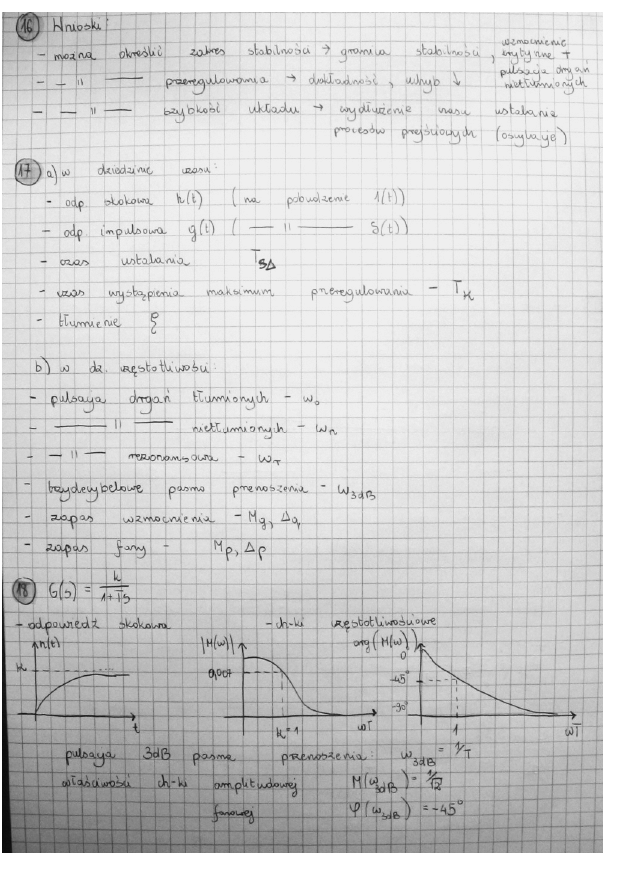 16 Wnioski:
- można określić zakres stabilności → granica stabilności, wzmocnienie krytyczne + pulsacja drgań nietłumionych
- — 11 — przeregulowania → dokładność, uchyb ↓
- — 11 — szybkość układu → wydłużenie czasu ustalania
procesów przejściowych (oscylacje)
17 a) w dziedzinie czasu:
- odp. skokowa h(t) (na pobudzenie 1(t))
- odp. impulsowa g(t) ( — 11 — δ(t))
- czas ustalania TsΔ
- czas wystąpienia maksimum przeregulowania - Tκ
- tłumienie ξ
b) w dz. częstotliwości:
- pulsacja drgań tłumionych - ω₀
- — 11 — nietłumionych - ωn
- — 11 — rezonansowa - ωr
- trzydecybelowe pasmo przenoszenia - ω3dB
- zapas wzmocnienia - Mg, Δg
- zapas fazy - Mp, Δp
18 G(s) = k/(1+Ts)
- odpowiedź skokowa - ch-ki częstotliwościowe
h(t) |M(ω)| arg(M(ω))
k 0,707 0 -45° -90°
t k=1 ωT 1 ωT
pulsacja 3dB pasma przenoszenia: ω3dB = 1/T
właściwości ch-ki amplitudowej M(ω3dB) = 1/√2
fazowej φ(ω3dB) = -45°